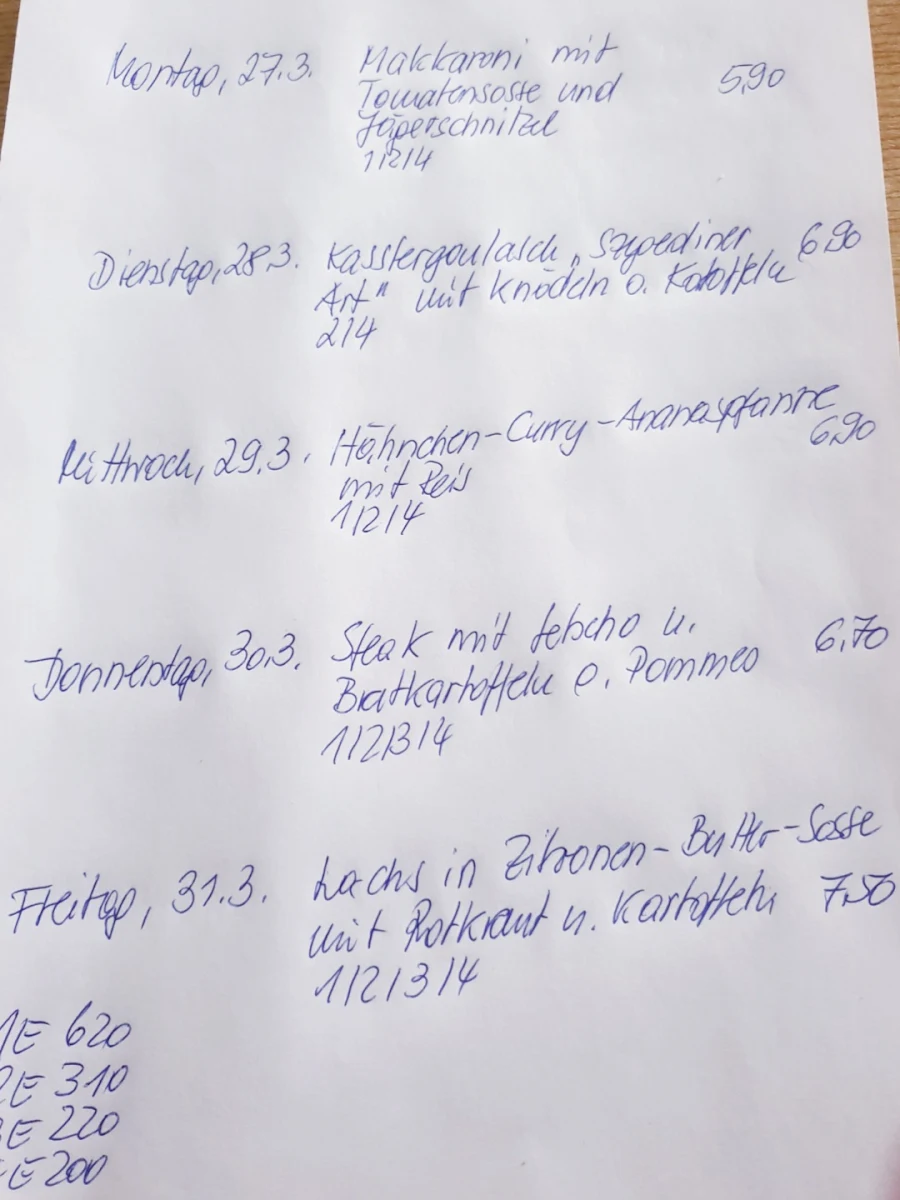 Montag, 27.3. Makkaroni mit 5,90
Tomatensosse und
Jägerschnitzel
1/2/4
Dienstag, 28.3. Kasslergoulasch „Szgediner 6,90
Art" mit Knödeln o. Kartoffeln
2/4
Mittwoch, 29.3. Hähnchen-Curry-Ananaspfanne
6,90
mit Reis
1/2/4
Donnerstag, 30.3. Steak mit Letscho u. 6,70
Bratkartoffeln o. Pommes
1/2/3/4
Freitag, 31.3. Lachs in Zitronen-Butter-Sosse
mit Rotkraut u. Kartoffeln 7,50
1/2/3/4
1E 620
2E 310
3E 220
E 200